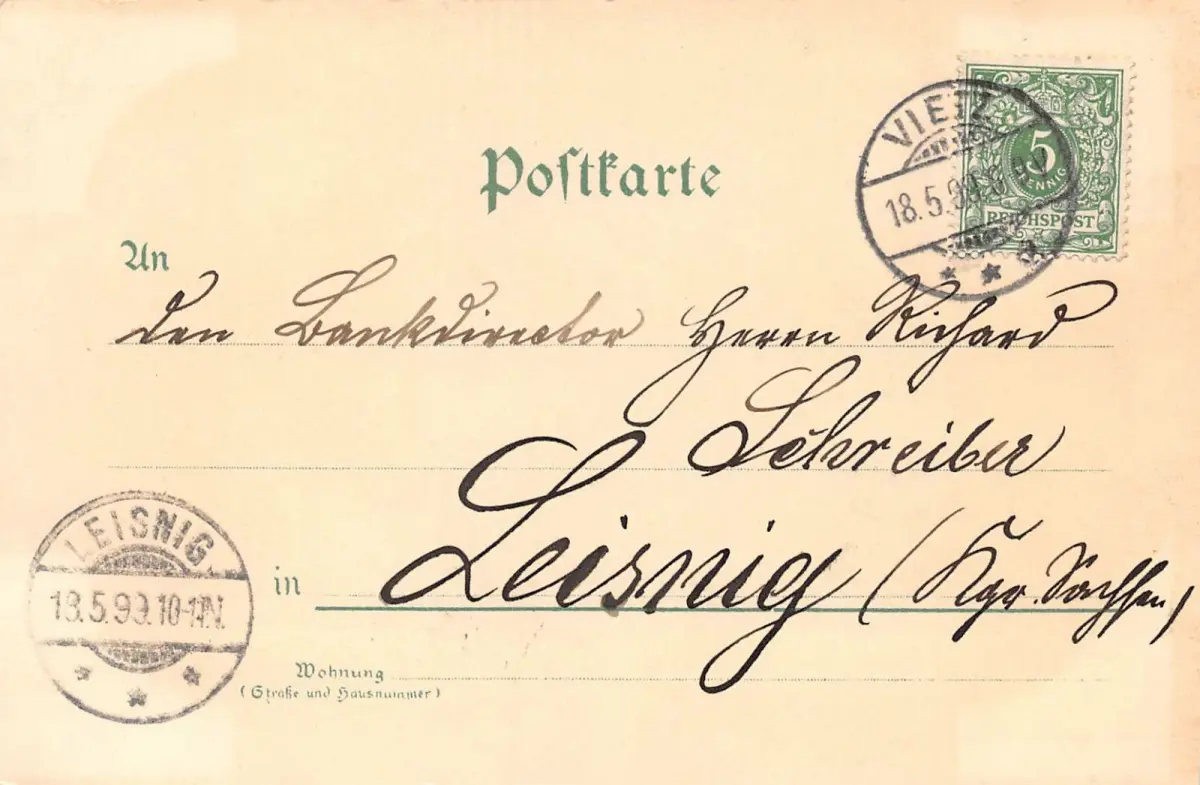 Postkarte
VIETZ
18.5.99. 8-9V
5
PFENNIG
REICHSPOST
An
den Bankdirector Herrn Richard
Schreiber
in Leisnig (Kgr. Sachsen)
LEISNIG
18.5.99.10-11N.
Wohnung
(Straße und Hausnummer)